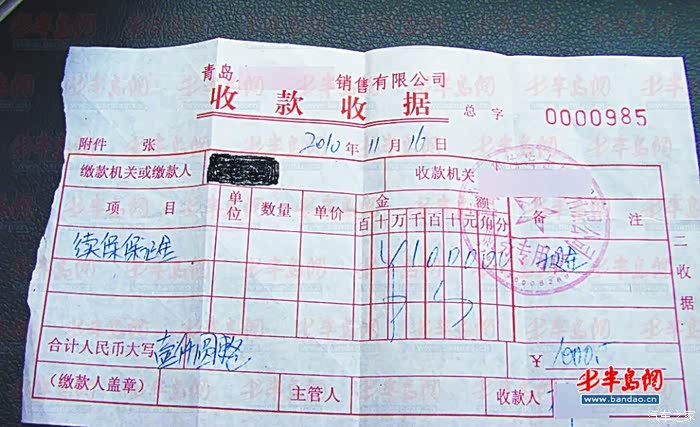 青岛 销售有限公司
收款收据
总 字 0000985
附件 张 2010年11月16日
缴款机关或缴款人 收款机关
项目 单位 数量 单价 金额 备注
百十万千百十元角分
续保保证金 ¥100000 现金
专用
二收据
合计人民币大写 壹仟圆整 ¥ 1000.-
(缴款人盖章) 主管人 收款人
半岛网
www.bandao.cn
汽车之家